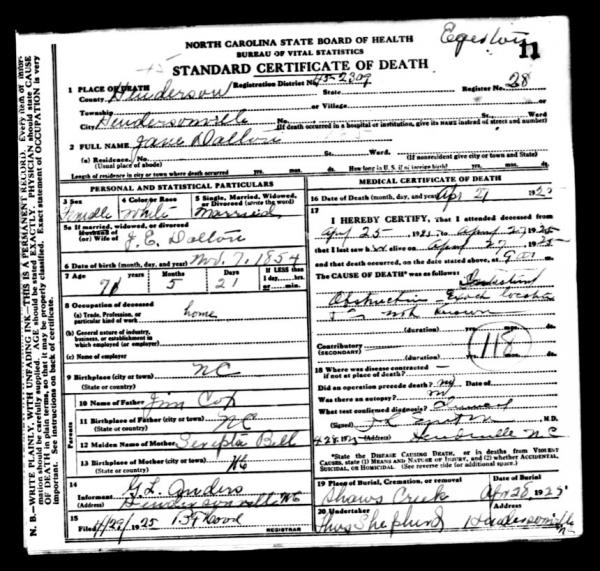 Egerton
11
NORTH CAROLINA STATE BOARD OF HEALTH
BUREAU OF VITAL STATISTICS
STANDARD CERTIFICATE OF DEATH
1 PLACE OF DEATH Registration District No. 45-2309 Register No. 28
County Henderson State
Township or Village or
City Hendersonville No. St. Ward
(If death occurred in a hospital or institution, give its NAME instead of street and number)
2 FULL NAME Jane Dalton
(a) Residence. No. St. Ward.
(Usual place of abode) (If nonresident give city or town and State)
Length of residence in city or town where death occurred yrs. mos. ds. How long in U. S. if of foreign birth? yrs. mos. ds.
PERSONAL AND STATISTICAL PARTICULARS
3 Sex 4 Color or Race 5 Single, Married, Widowed, or Divorced (write the word)
Female White Married
5a If married, widowed, or divorced
HUSBAND of
(or) Wife of J. E. Dalton
6 Date of birth (month, day, and year) Nov. 7, 1854
7 Age Years Months Days If LESS than 1 day, hrs. or min.
70 5 21
8 Occupation of deceased
(a) Trade, Profession, or particular kind of work home
(b) General nature of industry, business, or establishment in which employed (or employer)
(c) Name of employer
9 Birthplace (city or town) NC
(State or country)
Parents
10 Name of Father Jim Cox
11 Birthplace of Father (city or town) NC
(State or country)
12 Maiden Name of Mother Bell
13 Birthplace of Mother (city or town) NC
(State or country)
14
Informant G. L. Anders
(Address) Hendersonville NC
15
Filed 4/29, 1925
REGISTRAR
MEDICAL CERTIFICATE OF DEATH
16 Date of Death (month, day, and year) Apr 27 1925
17
I HEREBY CERTIFY, That I attended deceased from
Apl 25 1925 to April 27 1925
that I last saw her alive on April 27 1925
and that death occurred, on the date stated above, at 9 m.
The CAUSE OF DEATH* was as follows: Intestinal
Obstruction Exact location
not known
(duration) yrs. mos. ds.
Contributory
(SECONDARY)
118
(duration) yrs. mos. ds.
18 Where was disease contracted
if not at place of death?
Did an operation precede death? no Date of
Was there an autopsy? no
What test confirmed diagnosis?
(Signed) M.D.
4-28 1925 (Address) Hendersonville NC
*State the DISEASE CAUSING DEATH, or in deaths from VIOLENT CAUSES, state (1) MEANS and NATURE OF INJURY, and (2) whether ACCIDENTAL, SUICIDAL, or HOMICIDAL. (See reverse side for additional space.)
19 Place of Burial, Cremation, or removal Date of Burial
Shaws Creek Apr 28, 1925
20 Undertaker
Thos Shepherd Hendersonville
N. B.—WRITE PLAINLY, WITH UNFADING INK—THIS IS A PERMANENT RECORD. Every item of information should be carefully supplied. AGE should be stated EXACTLY. PHYSICIAN should state CAUSE OF DEATH in plain terms, so that it may be properly classified. Exact statement of OCCUPATION is very important. See instructions on back of certificate.